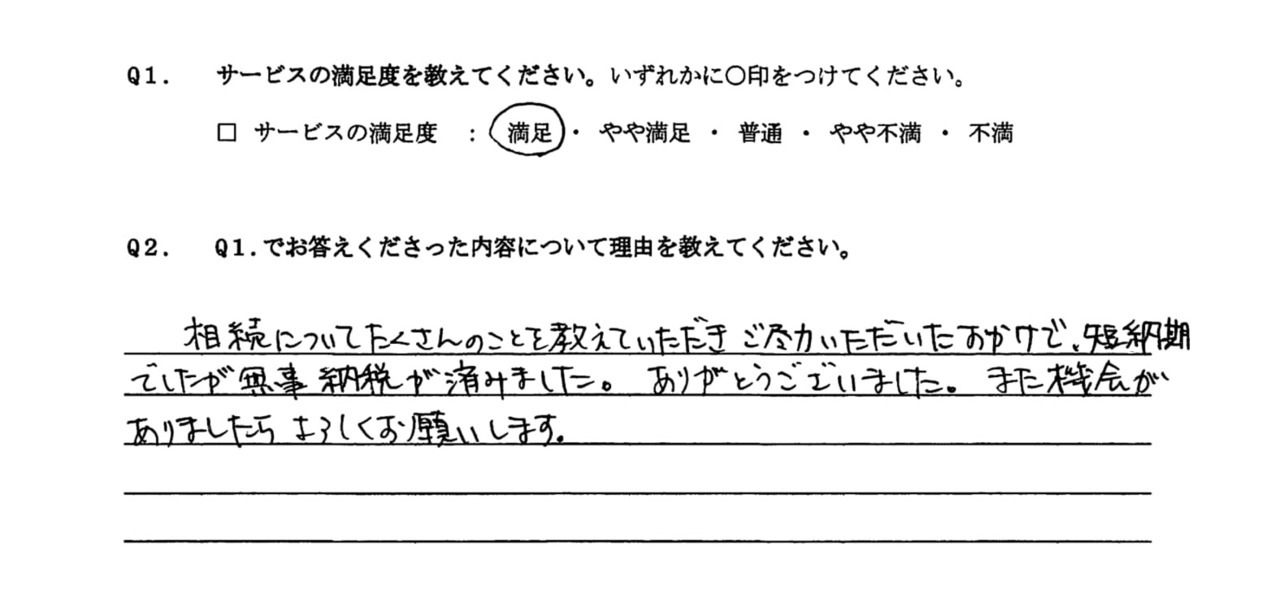 Q1. サービスの満足度を教えてください。いずれかに〇印をつけてください。
□ サービスの満足度 : 満足 ・ やや満足 ・ 普通 ・ やや不満 ・ 不満
Q2. Q1.でお答えくださった内容について理由を教えてください。
相続についてたくさんのことを教えていただきご尽力いただいたおかげで、短納期
でしたが無事納税が済みました。ありがとうございました。また機会が
ありましたらよろしくお願いします。